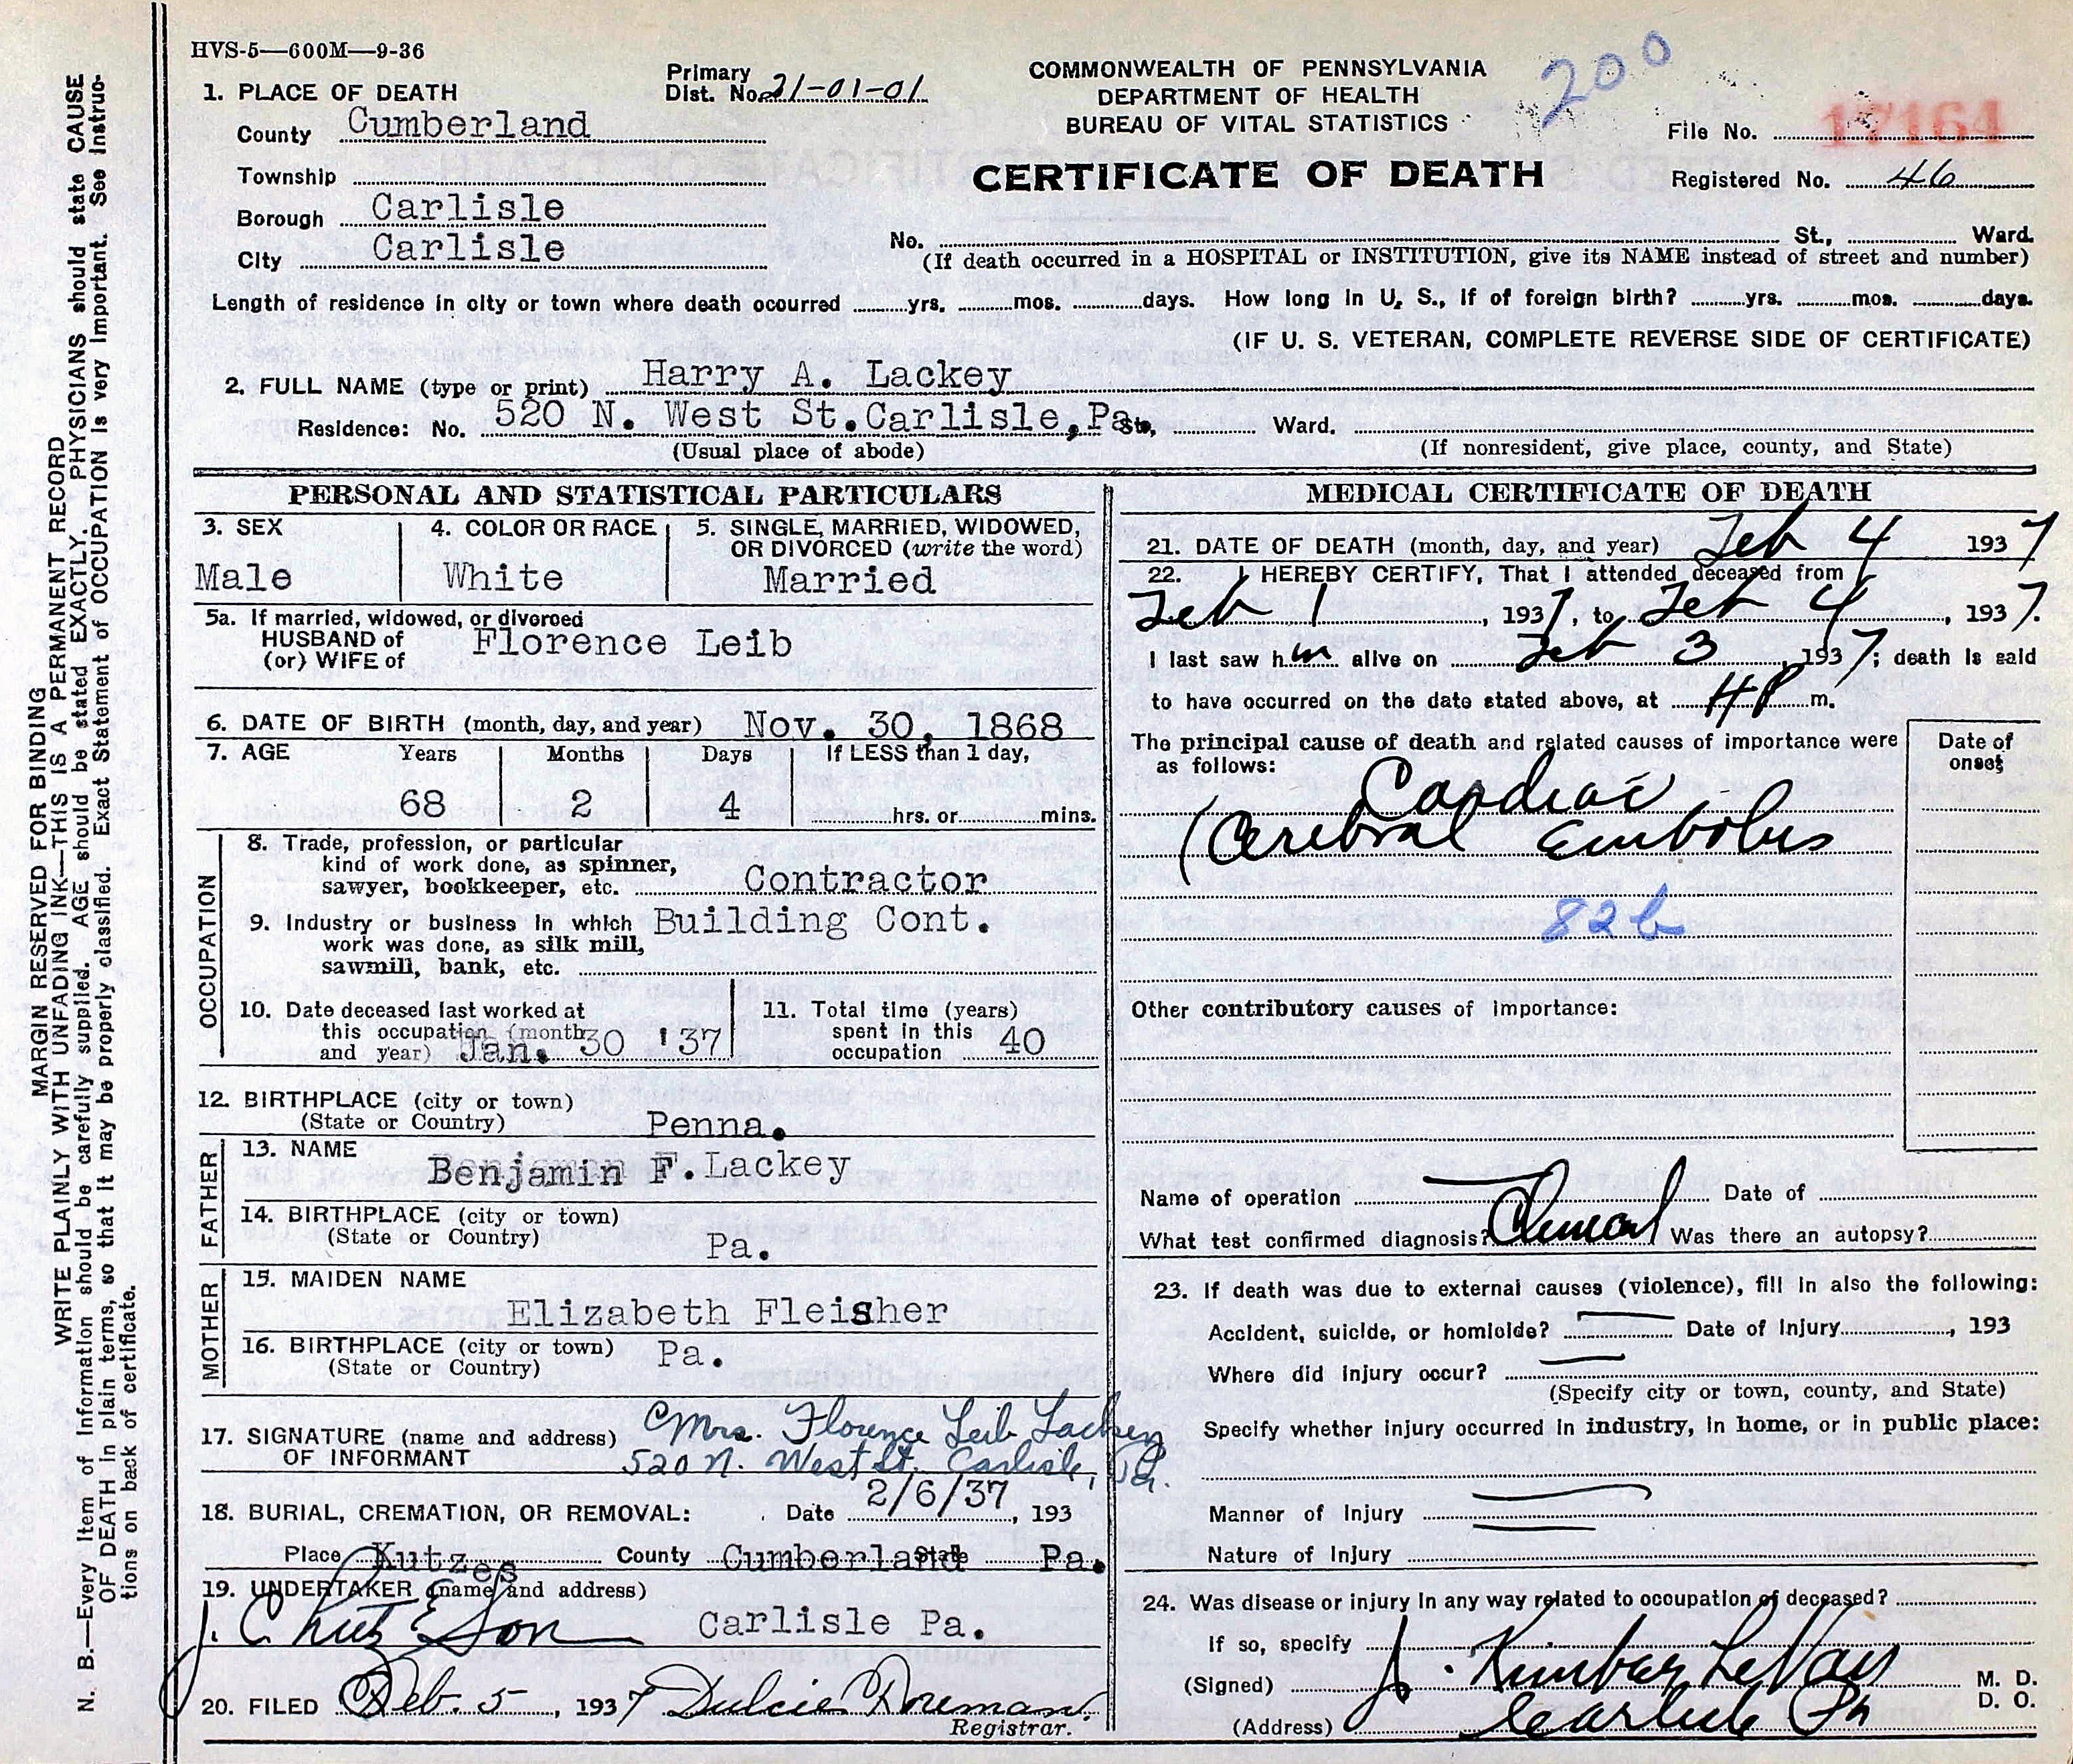 HVS-5—600M—9-36
1. PLACE OF DEATH
Primary
Dist. No. 21-01-01
COMMONWEALTH OF PENNSYLVANIA
DEPARTMENT OF HEALTH
BUREAU OF VITAL STATISTICS
CERTIFICATE OF DEATH
200
File No. 17164
Registered No. 46
County Cumberland
Township
Borough Carlisle
City Carlisle
No. St., Ward.
(If death occurred in a HOSPITAL or INSTITUTION, give its NAME instead of street and number)
Length of residence in city or town where death occurred yrs. mos. days. How long in U. S., if of foreign birth? yrs. mos. days.
(IF U. S. VETERAN, COMPLETE REVERSE SIDE OF CERTIFICATE)
2. FULL NAME (type or print) Harry A. Lackey
Residence: No. 520 N. West St. Carlisle, Pa. St., Ward.
(Usual place of abode) (If nonresident, give place, county, and State)
PERSONAL AND STATISTICAL PARTICULARS
3. SEX
Male
4. COLOR OR RACE
White
5. SINGLE, MARRIED, WIDOWED,
OR DIVORCED (write the word)
Married
5a. If married, widowed, or divorced
HUSBAND of
(or) WIFE of
Florence Leib
6. DATE OF BIRTH (month, day, and year) Nov. 30, 1868
7. AGE Years Months Days If LESS than 1 day,
68 2 4 hrs. or mins.
OCCUPATION
8. Trade, profession, or particular
kind of work done, as spinner,
sawyer, bookkeeper, etc. Contractor
9. Industry or business in which Building Cont.
work was done, as silk mill,
sawmill, bank, etc.
10. Date deceased last worked at
this occupation (month
and year) Jan. 30 '37
11. Total time (years)
spent in this
occupation 40
12. BIRTHPLACE (city or town)
(State or Country) Penna.
FATHER
13. NAME
Benjamin F. Lackey
14. BIRTHPLACE (city or town)
(State or Country) Pa.
MOTHER
15. MAIDEN NAME
Elizabeth Fleisher
16. BIRTHPLACE (city or town) Pa.
(State or Country)
17. SIGNATURE (name and address) Mrs. Florence Leib Lackey
OF INFORMANT 520 N. West St. Carlisle, Pa.
18. BURIAL, CREMATION, OR REMOVAL: Date 2/6/37, 193
Place Kutzes County Cumberland State Pa.
19. UNDERTAKER (name and address)
& Son Carlisle Pa.
20. FILED Feb. 5, 1937 Dulcie Noreman.
Registrar.
MEDICAL CERTIFICATE OF DEATH
21. DATE OF DEATH (month, day, and year) Feb 4 1937
22. I HEREBY CERTIFY, That I attended deceased from
Feb 1, 1937, to Feb 4, 1937.
I last saw him alive on Feb 3, 1937; death is said
to have occurred on the date stated above, at 4P m.
The principal cause of death and related causes of importance were
as follows:
Date of
onset
Cardiac
(Cerebral Embolus
82b
Other contributory causes of importance:
Name of operation Date of
What test confirmed diagnosis? Clinical Was there an autopsy?
23. If death was due to external causes (violence), fill in also the following:
Accident, suicide, or homicide? Date of Injury, 193
Where did injury occur?
(Specify city or town, county, and State)
Specify whether injury occurred in industry, in home, or in public place:
Manner of Injury
Nature of Injury
24. Was disease or injury in any way related to occupation of deceased?
If so, specify
(Signed) J. Kimber LeVan M. D.
D. O.
(Address) Carlisle Pa
MARGIN RESERVED FOR BINDING
WRITE PLAINLY WITH UNFADING INK—THIS IS A PERMANENT RECORD
N. B.—Every item of information should be carefully supplied. AGE should be stated EXACTLY. PHYSICIANS should state CAUSE
OF DEATH in plain terms, so that it may be properly classified. Exact Statement of OCCUPATION is very important. See instruc-
tions on back of certificate.